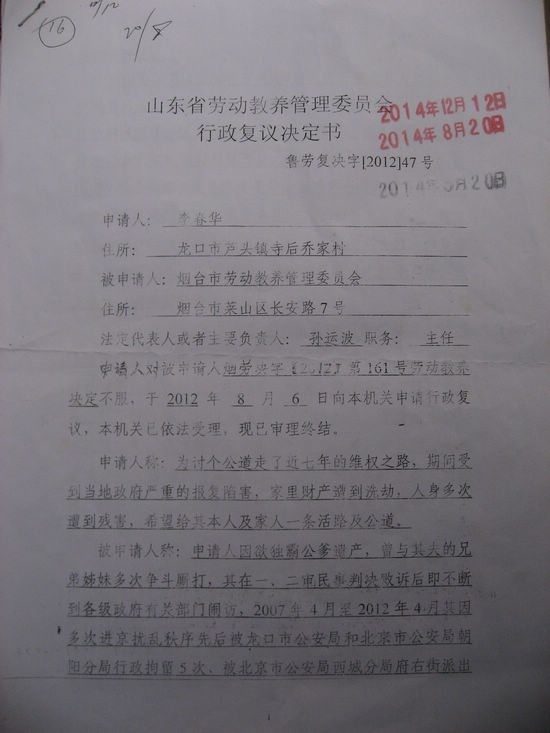 16
山东省劳动教养管理委员会
2014年12月12日
行政复议决定书
2014年8月20日
鲁劳复决字[2012]47号
申请人：李春华
住所：龙口市芦头镇寺后乔家村
被申请人：烟台市劳动教养管理委员会
住所：烟台市莱山区长安路7号
法定代表人或者主要负责人：孙运波 职务：主任
申请人对被申请人烟劳决字〔2012〕第161号劳动教养
决定不服，于2012年8月6日向本机关申请行政复
议，本机关已依法受理，现已审理终结。
申请人称：为讨个公道走了近七年的维权之路，期间受
到当地政府严重的报复陷害，家里财产遭到洗劫，人身多次
遭到残害，希望给其本人及家人一条活路及公道。
被申请人称：申请人因欲独霸公爹遗产，曾与其夫的兄
弟姊妹多次争斗厮打，其在一、二审民事判决败诉后即不断
到各级政府有关部门闹访，2007年4月至2012年4月其因
多次进京扰乱秩序先后被龙口市公安局和北京市公安局朝
阳分局行政拘留5次、被北京市公安局西城分局府右街派出
1